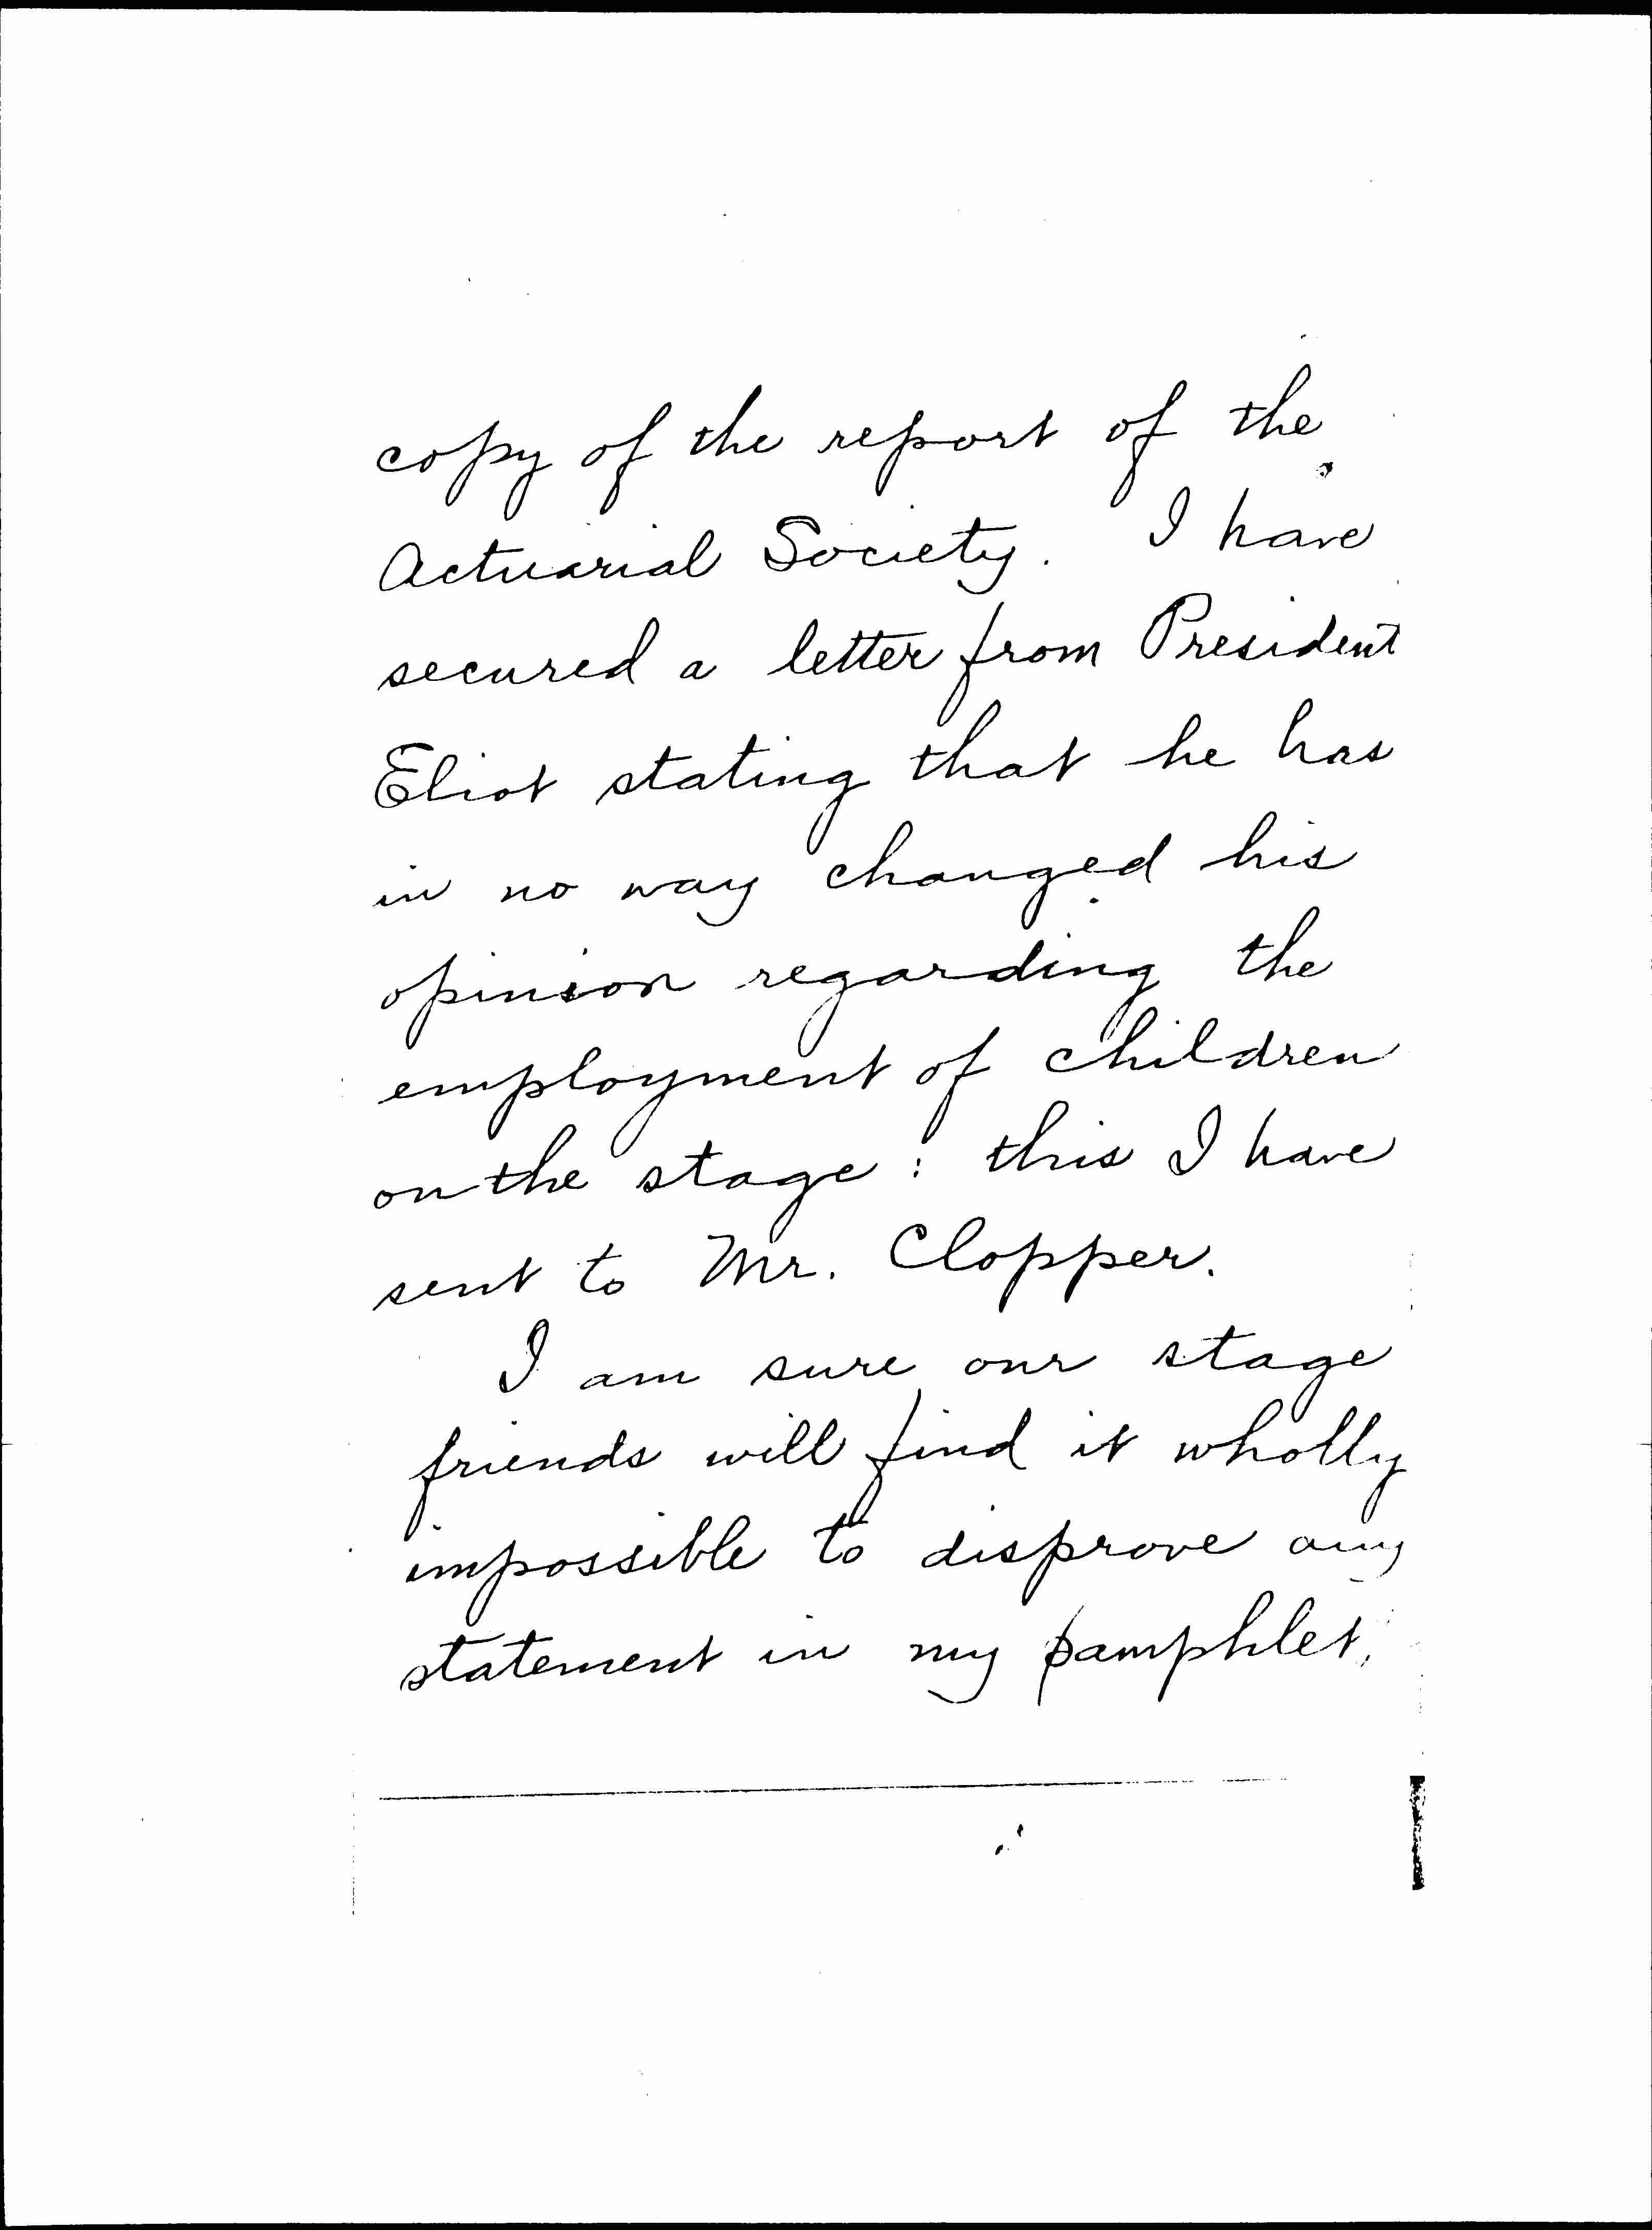 copy of the report of the
Actuarial Society. I have
secured a letter from President
Eliot stating that he has
in no way changed his
opinion regarding the
employment of children
on the stage: this I have
sent to Mr. Clopper.
I am sure our stage
friends will find it wholly
impossible to disprove any
statement in my pamphlet,